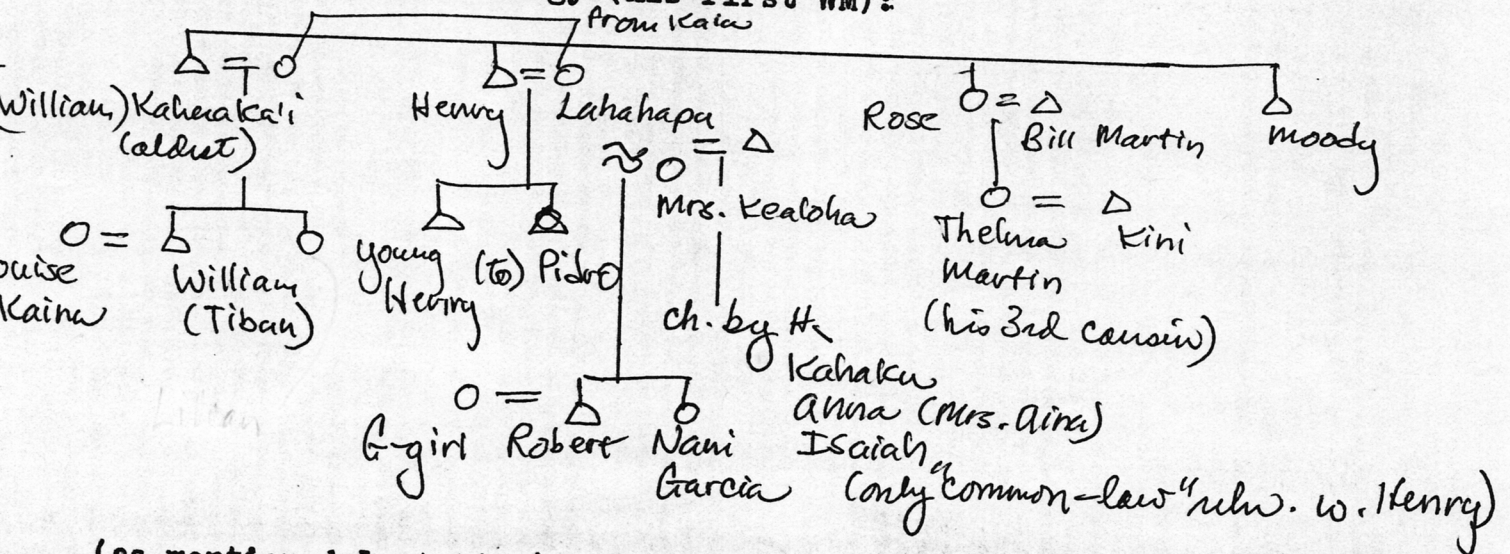 (his first WM):
from Kaia
(William) Kahuakaʻi
(oldest)
Henry
Lahahapa
Rose
Bill Martin
Moody
Mrs. Kealoha
Thelma Kini
Martin
(his 3rd cousin)
ouise
Kaina
William
(Tiban)
young
Henry
(to) Pidro
ch. by H.
Kahaku
Anna (Mrs. Aina)
Isaiah
(only "common-law" reln. w. Henry)
G-girl Robert Nani
Garcia
Lillian